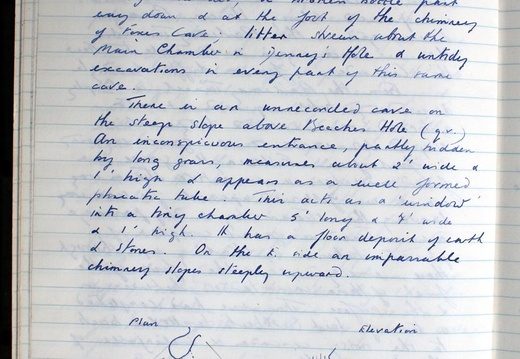 way down & at the foot of the chimney
of Foxes Cave; litter strewn about the
Main Chamber in Denny's Hole & untidy
excavations in every part of this same
cave.
There is an unrecorded cave on
the steep slope above Reaches Hole (q.v.)
An inconspicuous entrance, partly hidden
by long grass, measures about 2' wide &
1' high & appears as a well formed
phreatic tube. This acts as a 'window'
into a tiny chamber 5' long & 4' wide
& 1' high. It has a floor deposit of earth
& stones. On the E. side an impassable
chimney slopes steeply upward.
Plan
Elevation